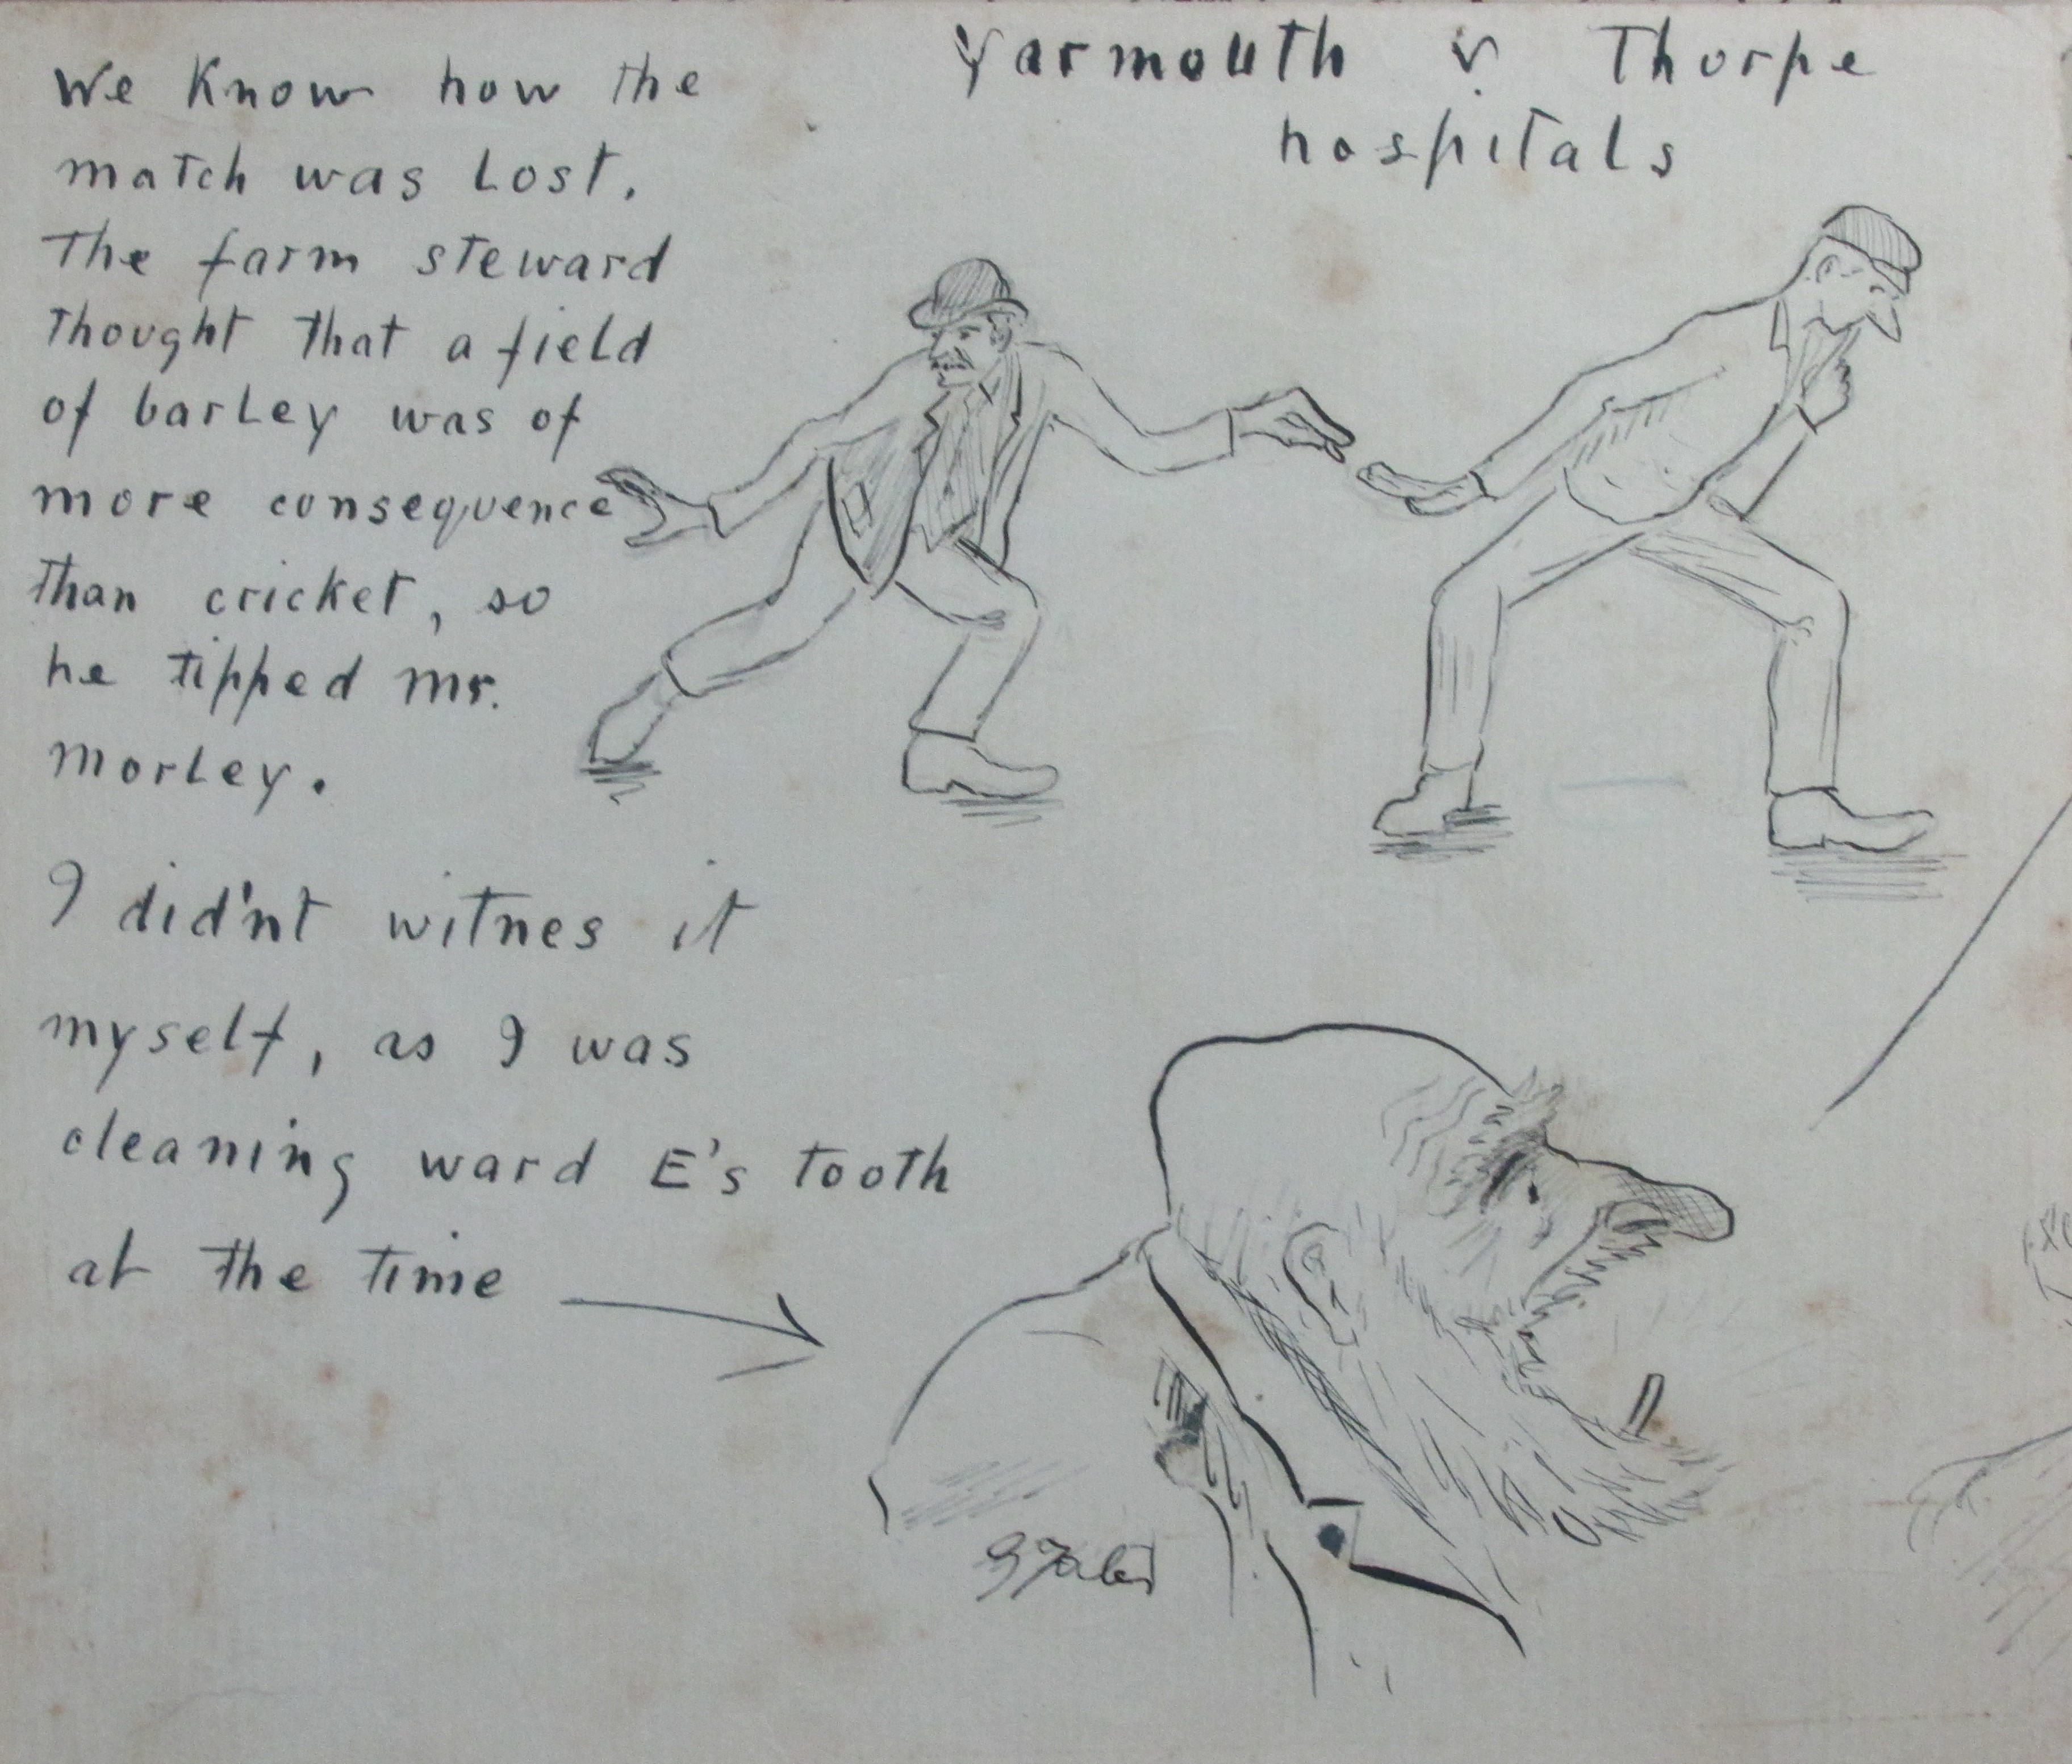 Yarmouth v Thorpe
hospitals
We know how the
match was Lost.
The farm steward
thought that a field
of barley was of
more consequence
than cricket, so
he tipped mr.
morley.
I did'nt witnes it
myself, as I was
cleaning ward E's tooth
at the time